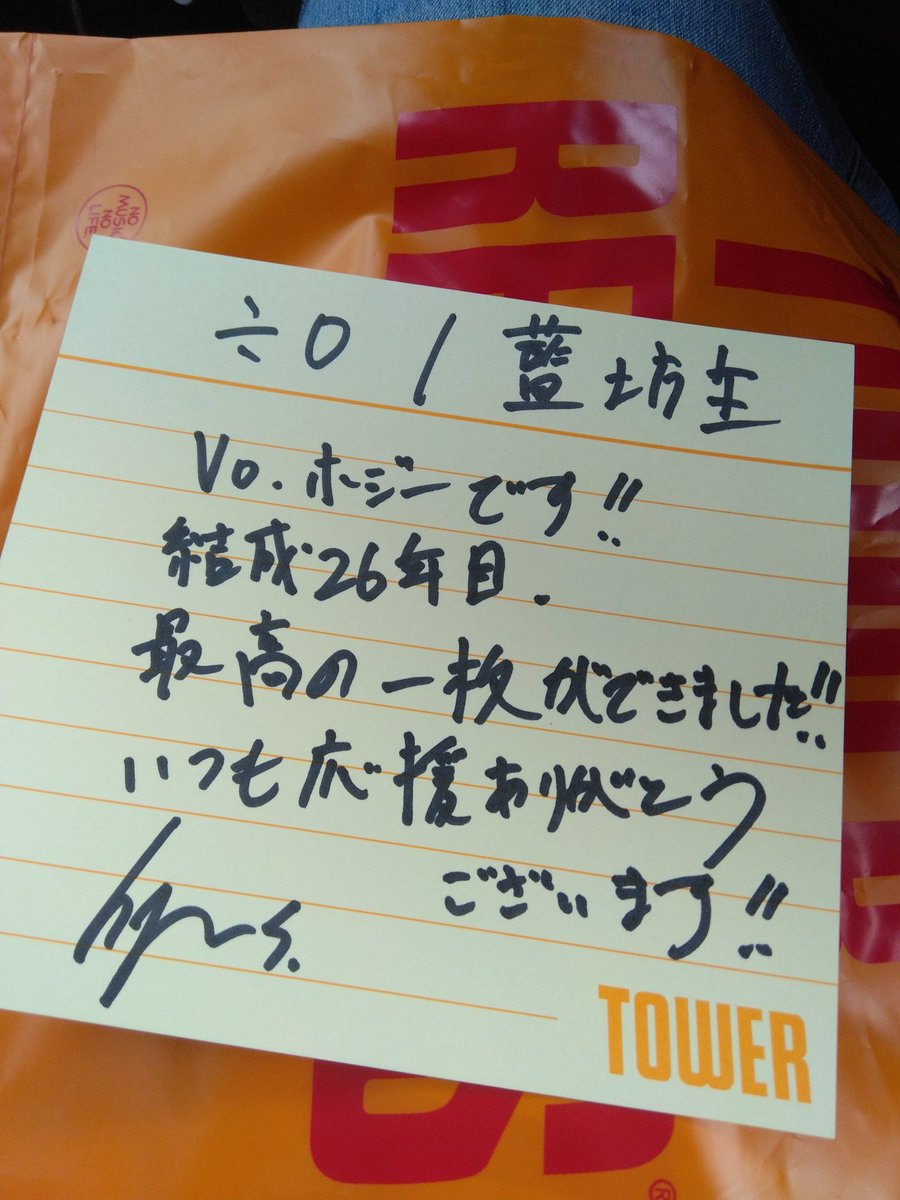 NO
MUSIC
NO
LIFE
÷0 / 藍坊主
Vo. ホジーです!!
結成26年目.
最高の一枚ができました!!
いつも応援ありがとう
ございます!!
TOWER